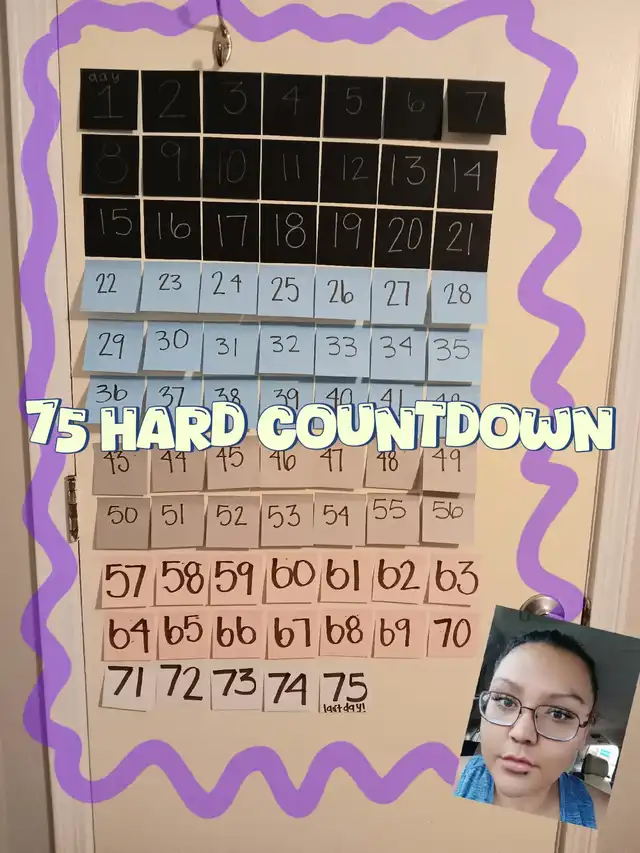 day
1 2 3 4 5 6 7
8 9 10 11 12 13 14
15 16 17 18 19 20 21
22 23 24 25 26 27 28
29 30 31 32 33 34 35
36 37 38 39 40 41 42
75 HARD COUNTDOWN
43 44 45 46 47 48 49
50 51 52 53 54 55 56
57 58 59 60 61 62 63
64 65 66 67 68 69 70
71 72 73 74 75
last day!